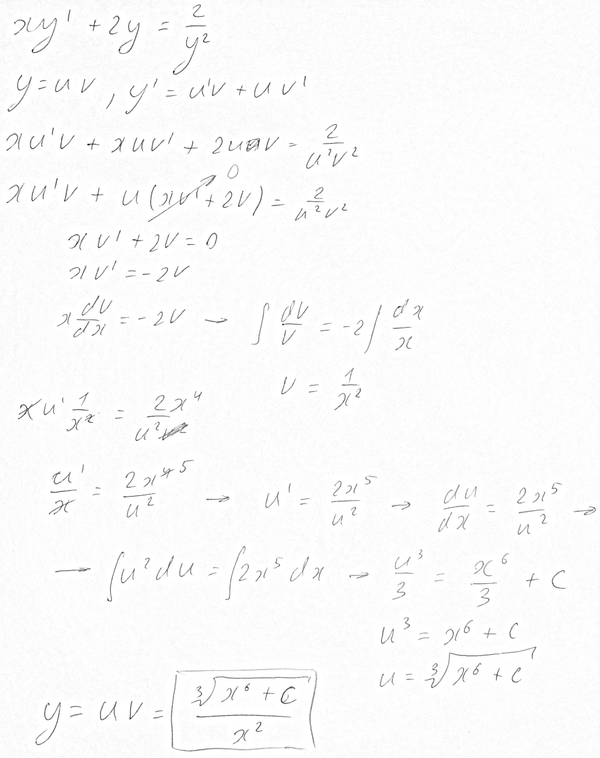 xy' + 2y = 2/y²
y = uv, y' = u'v + uv'
xu'v + xuv' + 2uv = 2/(u²v²)
xu'v + u(xv' + 2v) = 2/(u²v²)
0
xv' + 2v = 0
xv' = -2v
x dv/dx = -2v → ∫ dv/v = -2 ∫ dx/x
v = 1/x²
xu' 1/x² = 2x⁴/u²
u'/x = 2x⁴/u² → u' = 2x⁵/u² → du/dx = 2x⁵/u² →
→ ∫u² du = ∫2x⁵ dx → u³/3 = x⁶/3 + C
u³ = x⁶ + C
u = ∛(x⁶ + C)
y = uv = ∛(x⁶ + C)/x²